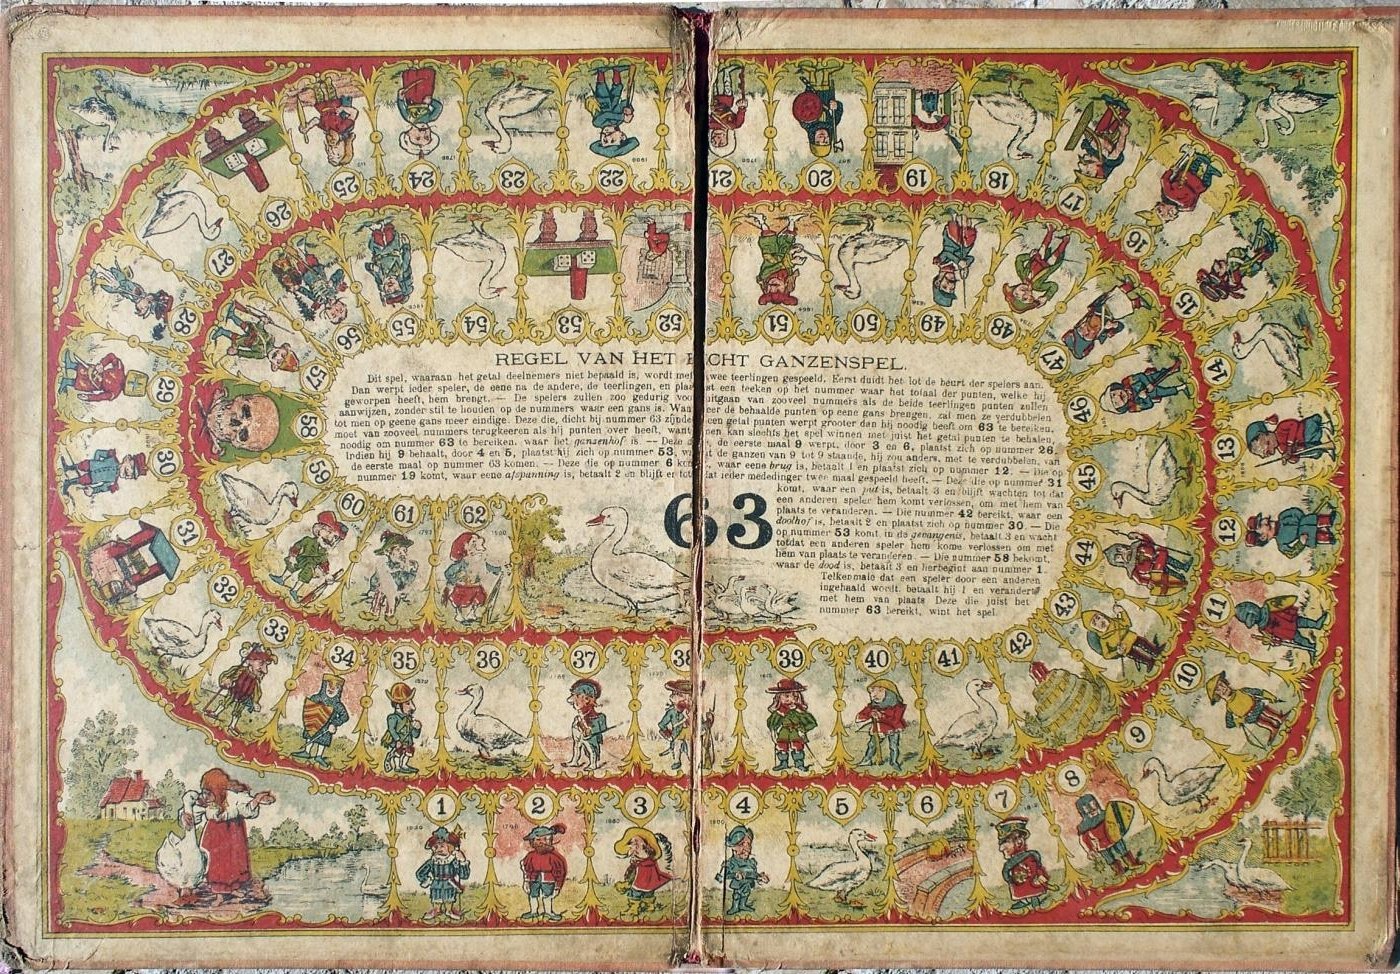 REGEL VAN HET ECHT GANZENSPEL.
Dit spel, waaraan het getal deelnemers niet bepaald is, wordt met twee teerlingen gespeeld. Eerst duidt het lot de beurt der spelers aan.
Dan werpt ieder speler, de eene na de andere, de teerlingen, en plaatst een teeken op het nummer waar het totaal der punten, welke hij
geworpen heeft, hem brengt. — De spelers zullen zoo gedurig voortgaan van zooveel nummers als de beide teerlingen punten zullen
aanwijzen, zonder stil te houden op de nummers waar een gans is. Wanneer de behaalde punten op eene gans brengen, zal men ze verdubbelen
tot men op geene gans meer eindige. Deze die, dicht bij nummer 63 zijnde een getal punten werpt grooter dan hij noodig heeft om 63 te bereiken,
moet van zooveel nummers terugkeeren als hij punten over heeft, want men kan slechts het spel winnen met juist het getal punten te behalen,
noodig om nummer 63 te bereiken, waar het ganzenhof is. — Deze die, de eerste maal 9 werpt, door 3 en 6, plaatst zich op nummer 26.
Indien hij 9 behaalt, door 4 en 5, plaatst hij zich op nummer 53, de ganzen van 9 tot 9 staande, hij zou anders, met te verdubbelen, van
de eerste maal op nummer 63 komen. — Deze die op nummer 6 komt, waar eene brug is, betaalt 1 en plaatst zich op nummer 12. — Die op
nummer 19 komt, waar eene afspanning is, betaalt 2 en blijft er tot dat ieder mededinger twee maal gespeeld heeft. — Deze die nummer 31
komt, waar een put is, betaalt 3 en blijft wachten tot dat
een anderen speler hem komt verlossen, om met hem van
plaats te veranderen. — Die nummer 42 bereikt, waar een
doolhof is, betaalt 2 en plaatst zich op nummer 30. — Die
op nummer 53 komt in de gevangenis, betaalt 3 en wacht
totdat een anderen speler hem kome verlossen om met
hem van plaats te veranderen. — Die nummer 58 bekomt,
waar de dood is, betaalt 3 en herbegint aan nummer 1.
Telkenmale dat een speler door een anderen
ingehaald wordt, betaalt hij 1 en verandert
met hem van plaats. Deze die juist het
nummer 63 bereikt, wint het spel.
63
1
2
3
4
5
6
7
8
9
10
11
12
13
14
15
16
17
18
19
20
21
22
23
24
25
26
27
28
29
30
31
32
33
34
35
36
37
38
39
40
41
42
43
44
45
46
47
48
49
50
51
52
53
54
55
56
57
58
59
60
61
62